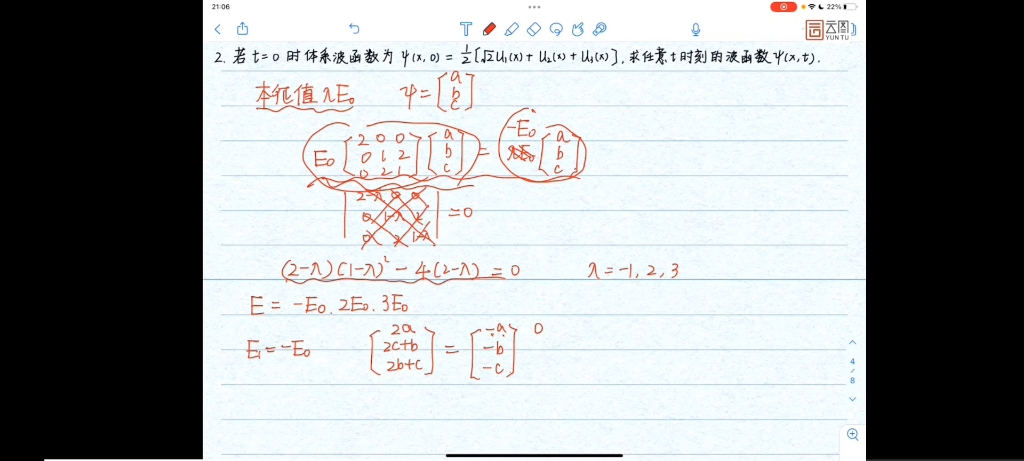 21:06
22%
云图
YUNTU
2. 若 t=0 时体系波函数为 ψ(x,0) = 1/2[√2 U₁(x) + U₂(x) + U₃(x)], 求任意 t 时刻的波函数 ψ(x,t).
本征值 λE₀ ψ = [a b c]
E₀ [2 0 0; 0 1 2; 0 2 1] [a b c] = -E₀ [a b c]
|2-λ 0 0; 0 1-λ 2; 0 2 1-λ| = 0
(2-λ)(1-λ)² - 4(2-λ) = 0 λ = -1, 2, 3
E = -E₀. 2E₀. 3E₀
E₁ = -E₀ [2a; 2c+b; 2b+c] = [-a; -b; -c] 0
4/8